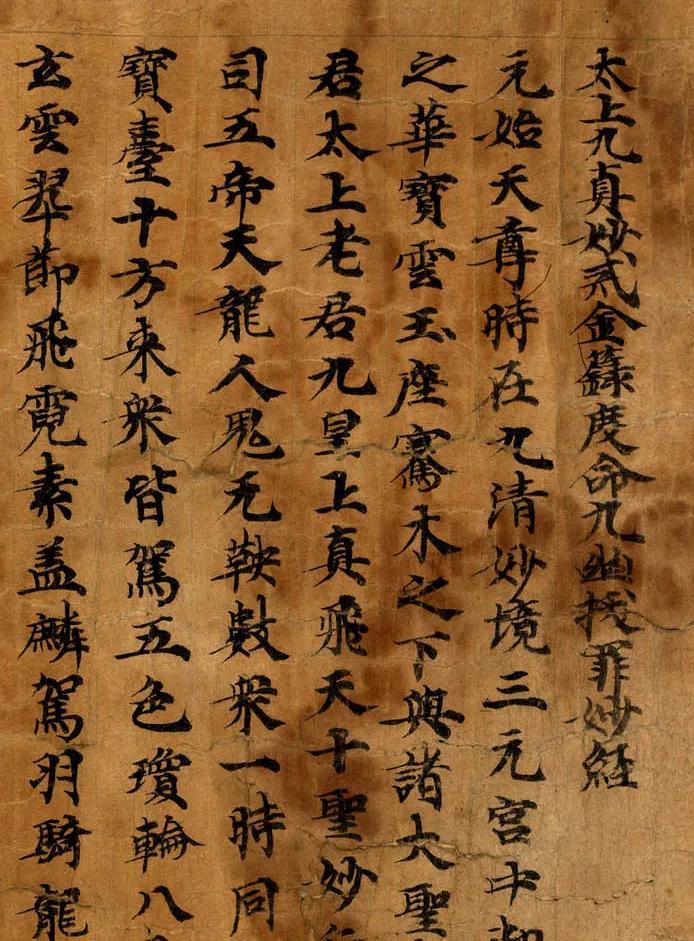 太上九真妙戒金籙度命九幽拔罪妙經
元始天尊時在九清妙境三元宮中
之華寶雲玉座騫木之下與諸大聖
君太上老君九皇上真飛天十聖妙
司五帝天龍人鬼无鞅數衆一時同
寶臺十方來衆皆駕五色瓊輪八
玄雲翠節飛霓素盖麟駕羽騎龍